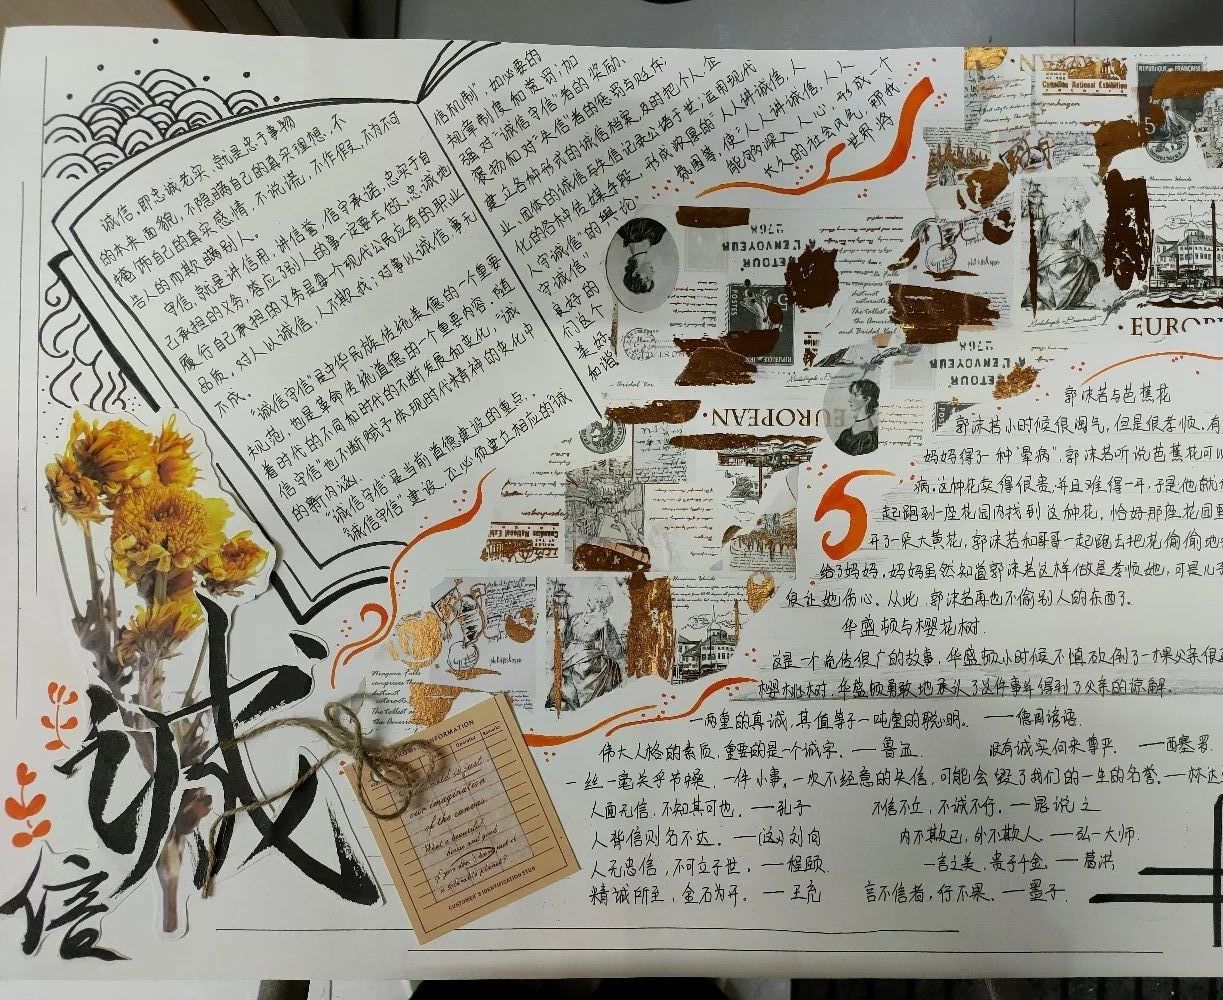 诚信,即忠诚老实,就是忠于事物
的本来面貌,不隐瞒自己的真实理想,不
掩饰自己的真实感情,不说谎,不作假,不为不可
告人的而欺瞒别人。
守信,就是讲信用,讲信誉,信守承诺,忠实于自
己承担的义务,答应了别人的事一定要去做,忠诚地
履行自己承担的义务是每个现代公民应有的职业
品质,对人以诚信,人不欺我;对事以诚信,事无
不成。
"诚信守信是中华民族传统美德的一个重要
规范,也是革命传统道德的一个重要内容,随
着时代的不同和时代的不断发展和变化,"诚
信守信也不断赋予体现时代精神的变化中
的新内涵。
"诚信守信"是当前道德建设的重点,
"诚信守信"建设,还必须建立相应的"诚
信机制",如必要的
规章制度和赏罚;加
强对"诚信守信"者的奖励、
褒扬和对"失信"者的惩罚与贬斥;
建立各种形式的诚信档案,及时把个人、企
业、团体的诚信与失信记录公诸于世;运用现代
化的各种传媒手段,形成浓厚的"人人讲诚信,人
人守诚信"的舆论氛围等,使"人人讲诚信,人人
守诚信"能够深入人心,形成一个
良好的长久的社会风气,那我
们这个世界将
美好
和谐
诚
信
EUROPEAN
2768
A L'ENVOYEUR
RETOUR
REPUBLIQUE FRANCAISE
Canadian National Exhibition
POSTES
郭沫若与芭蕉花
郭沫若小时候很淘气,但是很孝顺。有
妈妈得了一种"晕病",郭沫若听说芭蕉花可以
病。这种花卖得很贵,并且难得一开,于是他就
起跑到一座花园内找到这种花,恰好那座花园里
开了一朵大黄花,郭沫若和哥哥一起跑去把花偷偷地
给了妈妈,妈妈虽然知道郭沫若这样做是孝顺她,可是儿子
很让她伤心。从此,郭沫若再也不偷别人的东西了。
华盛顿与樱花树
这是一个流传很广的故事,华盛顿小时候不慎砍倒了一棵父亲很
樱桃树,华盛顿勇敢地承认了这件事并得到了父亲的谅解。
一两重的真诚,其值等于一吨重的聪明。——德国谚语
伟大人格的素质,重要的是一个诚字。——鲁迅 没有诚实何来尊严。——西塞罗
一丝一毫关乎节操,一件小事,一次不经意的失信,可能会毁了我们的一生的名誉。——林达
人而无信,不知其可也。——孔子 不信不立,不诚不行。——晁说之
人背信则名不达。——(汉)刘向 内不欺己,外不欺人。——弘一大师
人无忠信,不可立于世。——程颐 一言之美,贵于千金。——葛洪
精诚所至,金石为开。——王充 言不信者,行不果。——墨子
CUSTOMER'S IDENTIFICATION STUB